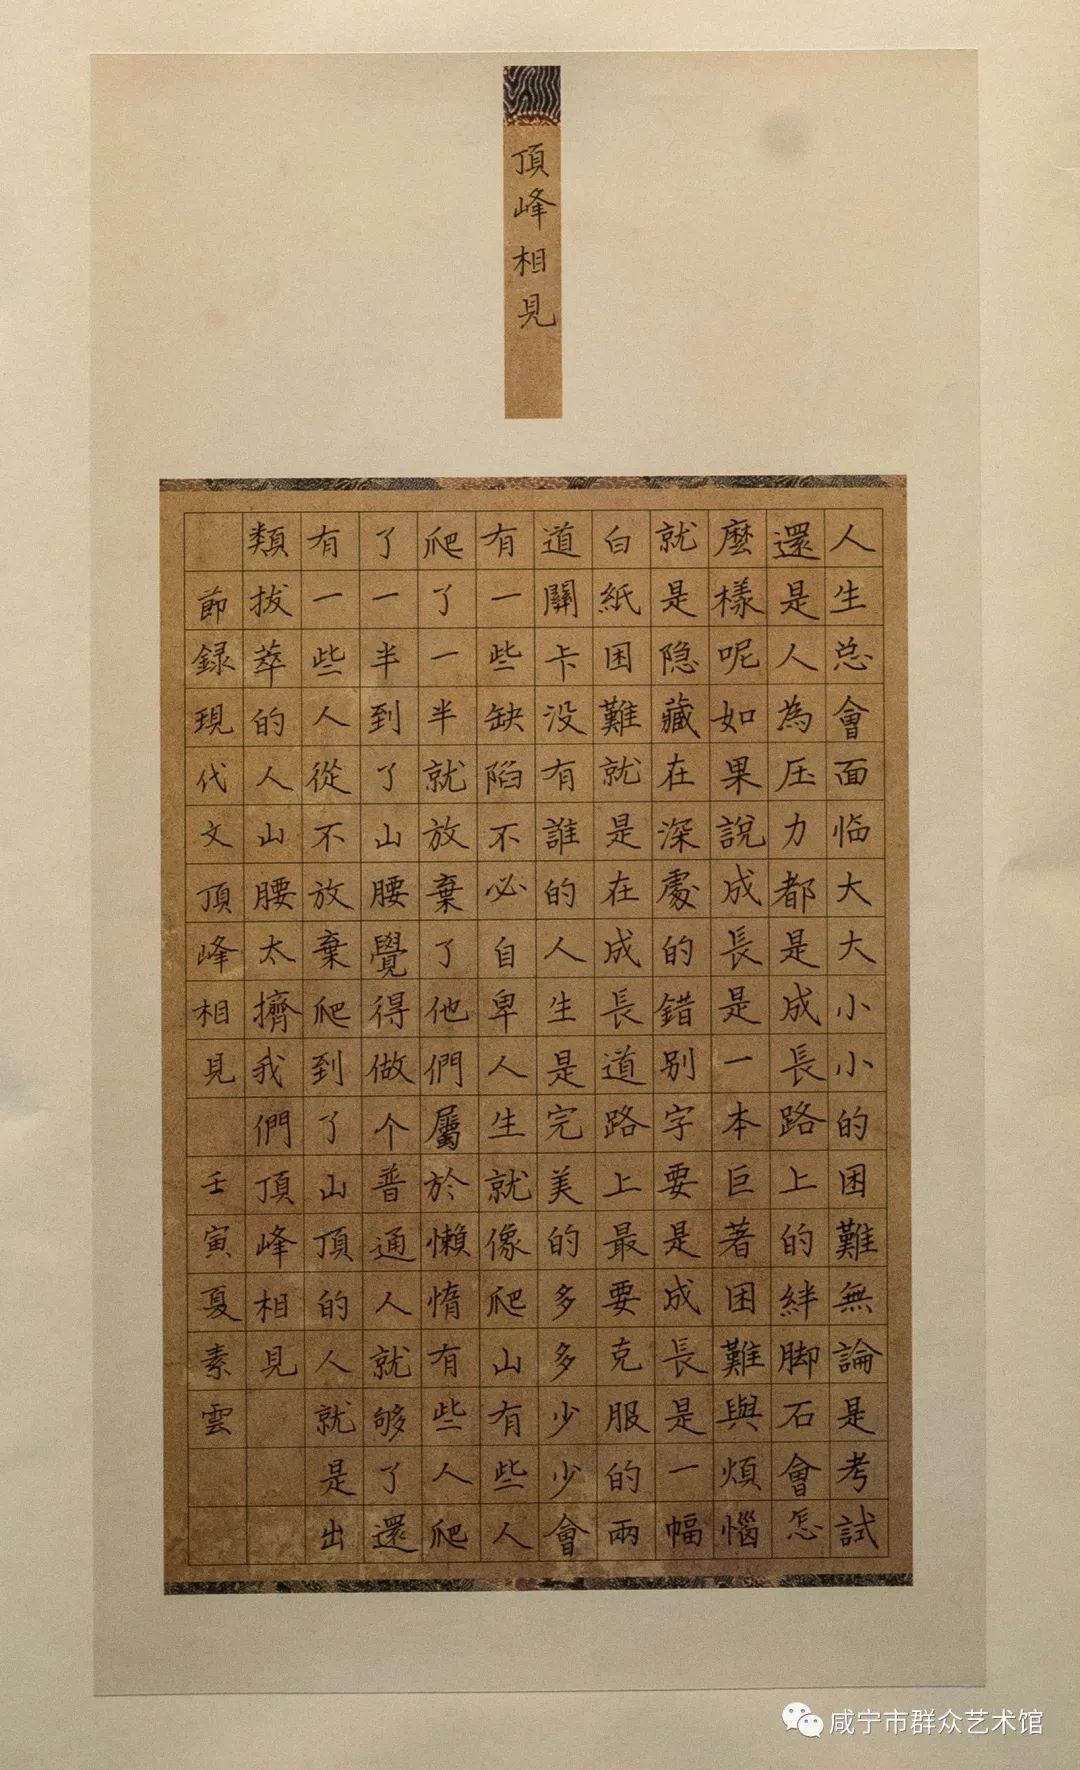 頂峰相見
人生总會面临大大小小的困難無論是考試
還是人為压力都是成長路上的絆脚石會怎
麽樣呢如果說成長是一本巨著困難與煩惱
就是隐藏在深處的錯别字要是成長是一幅
白紙困難就是在成長道路上最要克服的兩
道關卡没有誰的人生是完美的多多少少會
有一些缺陷不必自卑人生就像爬山有些人
爬了一半就放棄了他們屬於懶惰有些人爬
了一半到了山腰覺得做个普通人就够了還
有一些人從不放棄爬到了山頂的人就是出
類拔萃的人山腰太擠我們頂峰相見
節録現代文頂峰相見 壬寅夏素雲
咸宁市群众艺术馆